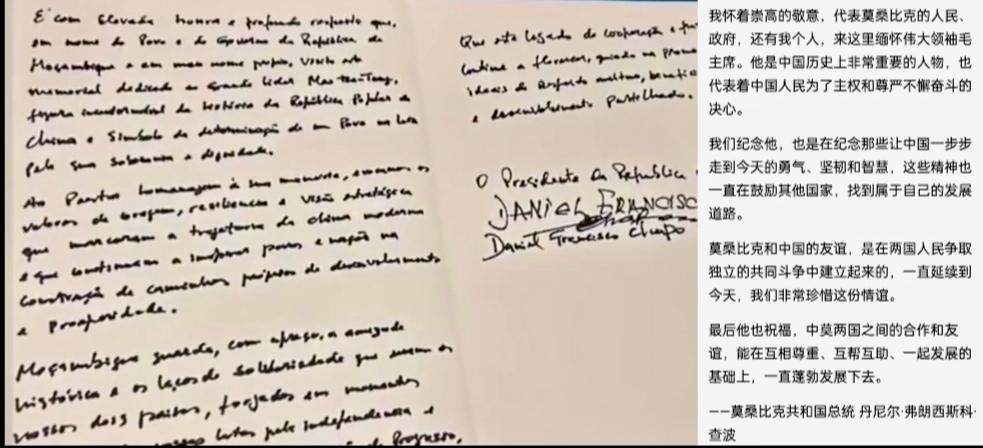 É com elevada honra e profundo respeito que,
em nome do Povo e do Governo da República de
Moçambique e em meu nome próprio, visito este
memorial dedicado ao grande líder Mao Tsé Tung,
figura incontornável da história da República Popular da
China e símbolo da determinação de um Povo na luta
pela sua soberania e dignidade.
Ao prestar homenagem à sua memória, evoco os
valores de coragem, resiliência e visão estratégica
que marcaram a trajetória da China moderna
e que continuam a inspirar povos e nações na
construção de caminhos próprios de desenvolvimento
e prosperidade.
Moçambique guarda, com apreço, a amizade
histórica e os laços de solidariedade que unem os
nossos dois países, forjados em momentos
lutas pela independência e
Progresso,
Que este legado de cooperação e
continue a florescer, guiado
ideais de respeito mútuo,
e desenvolvimento partilhado.
O Presidente da República
DANIEL FRANCISCO
Daniel Francisco Chapo
我怀着崇高的敬意，代表莫桑比克的人民、
政府，还有我个人，来这里缅怀伟大领袖毛
主席。他是中国历史上非常重要的人物，也
代表着中国人民为了主权和尊严不懈奋斗的
决心。
我们纪念他，也是在纪念那些让中国一步步
走到今天的勇气、坚韧和智慧，这些精神也
一直在鼓励其他国家，找到属于自己的发展
道路。
莫桑比克和中国的友谊，是在两国人民争取
独立的共同斗争中建立起来的，一直延续到
今天，我们非常珍惜这份情谊。
最后他也祝福，中莫两国之间的合作和友
谊，能在互相尊重、互帮互助、一起发展的
基础上，一直蓬勃发展下去。
——莫桑比克共和国总统 丹尼尔·弗朗西斯科·
查波